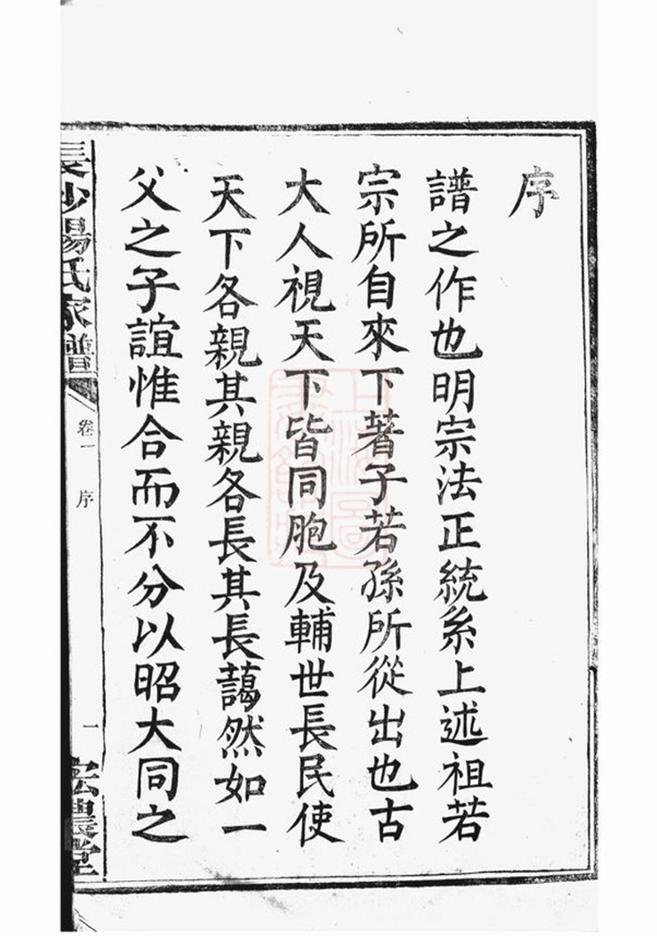 序
譜之作也明宗法正統系上述祖若
宗所自來下著子若孫所從出也古
大人視天下皆同胞及輔世長民使
天下各親其親各長其長藹然如一
父之子誼惟合而不分以昭大同之
長沙楊氏家譜
卷一 序
一
宏農堂